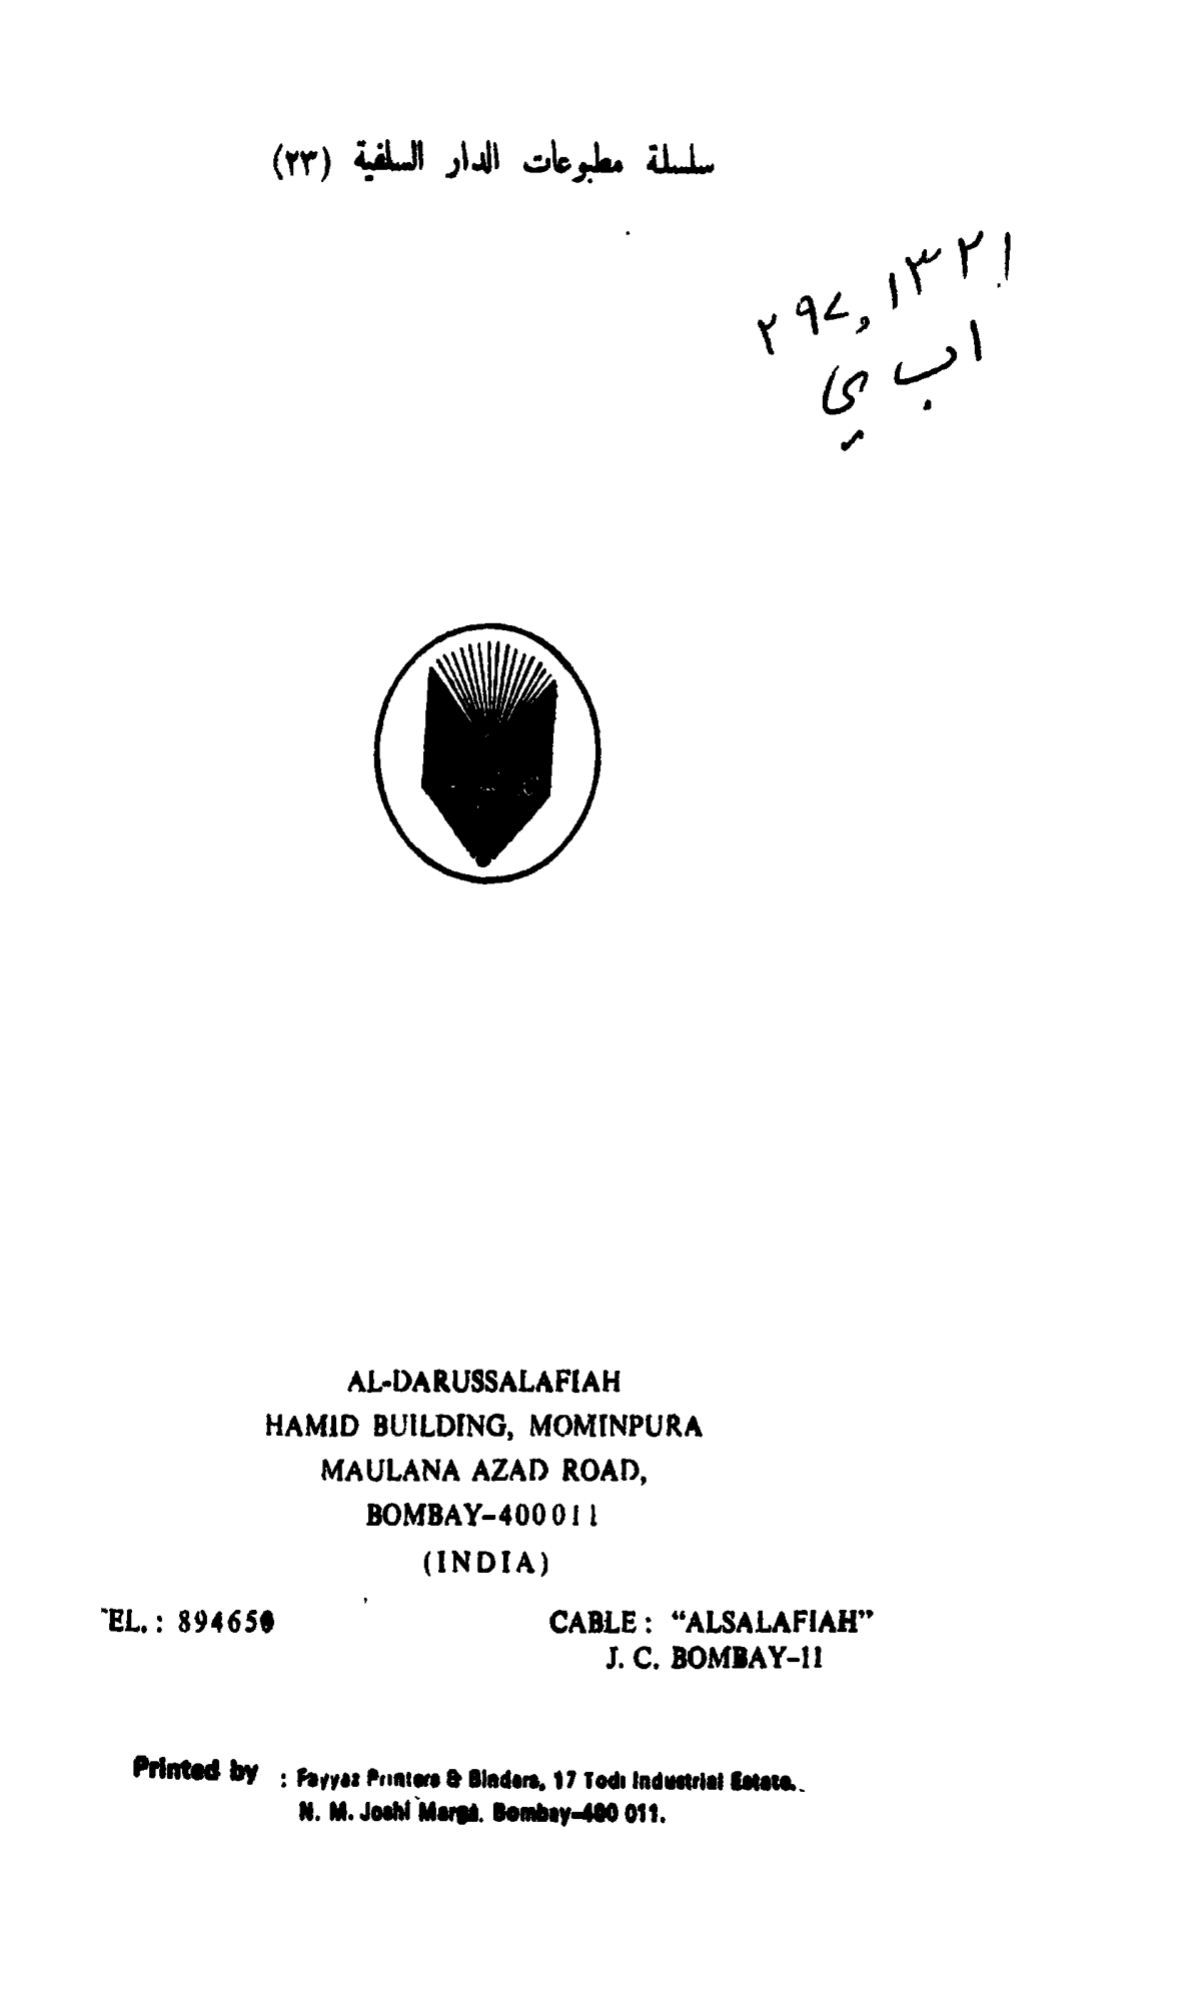 سلسلة مطبوعات الدار السلفية (٢٣)
٢٩٧,١٣٢١
اب ي
AL-DARUSSALAFIAH
HAMID BUILDING, MOMINPURA
MAULANA AZAD ROAD,
BOMBAY-400011
(INDIA)
TEL. : 894650 CABLE : “ALSALAFIAH”
J. C. BOMBAY-11
Printed by : Fayyaz Printers & Binders, 17 Todi Industrial Estate.
N. M. Joshi Marga. Bombay-400 011.